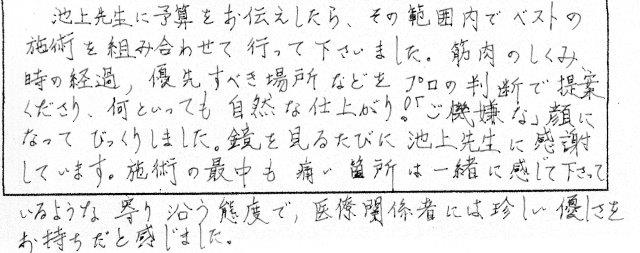 池上先生に予算をお伝えしたら、その範囲内でベストの
施術を組み合わせて行って下さいました。筋肉のしくみ、
時の経過,優先すべき場所などをプロの判断で提案
くださり、何といっても自然な仕上がり。「ご機嫌な」顔に
なってびっくりしました。鏡を見るたびに池上先生に感謝
しています。施術の最中も痛い箇所は一緒に感じて下さって
いるような寄り沿う態度で,医療関係者には珍しい優しさを
お持ちだと感じました。